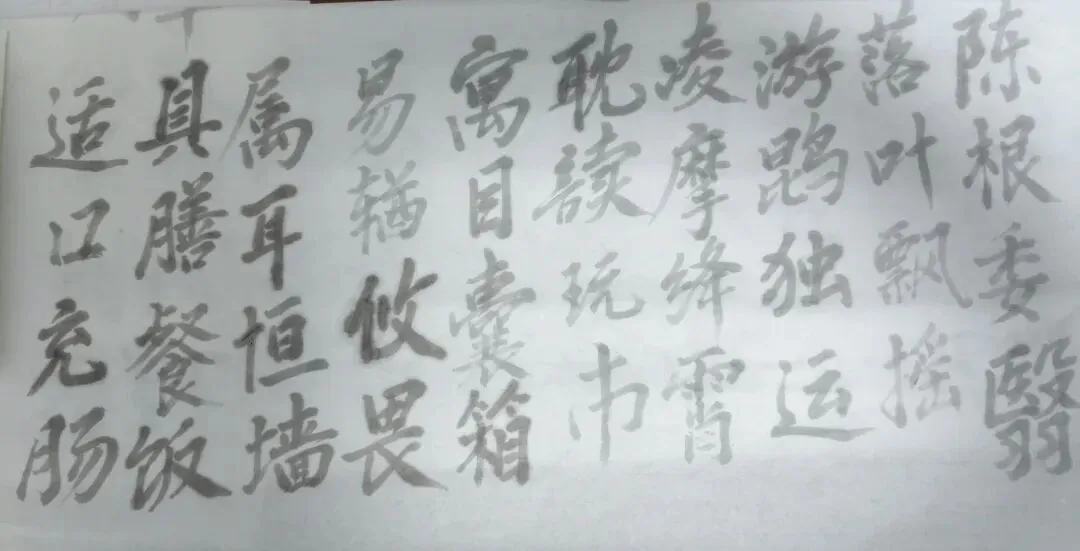 陈根委翳
落叶飘摇
游鹍独运
凌摩绛霄
耽讀玩市
寓目囊箱
易𬨎攸畏
属耳恒墙
具膳餐饭
适口充肠